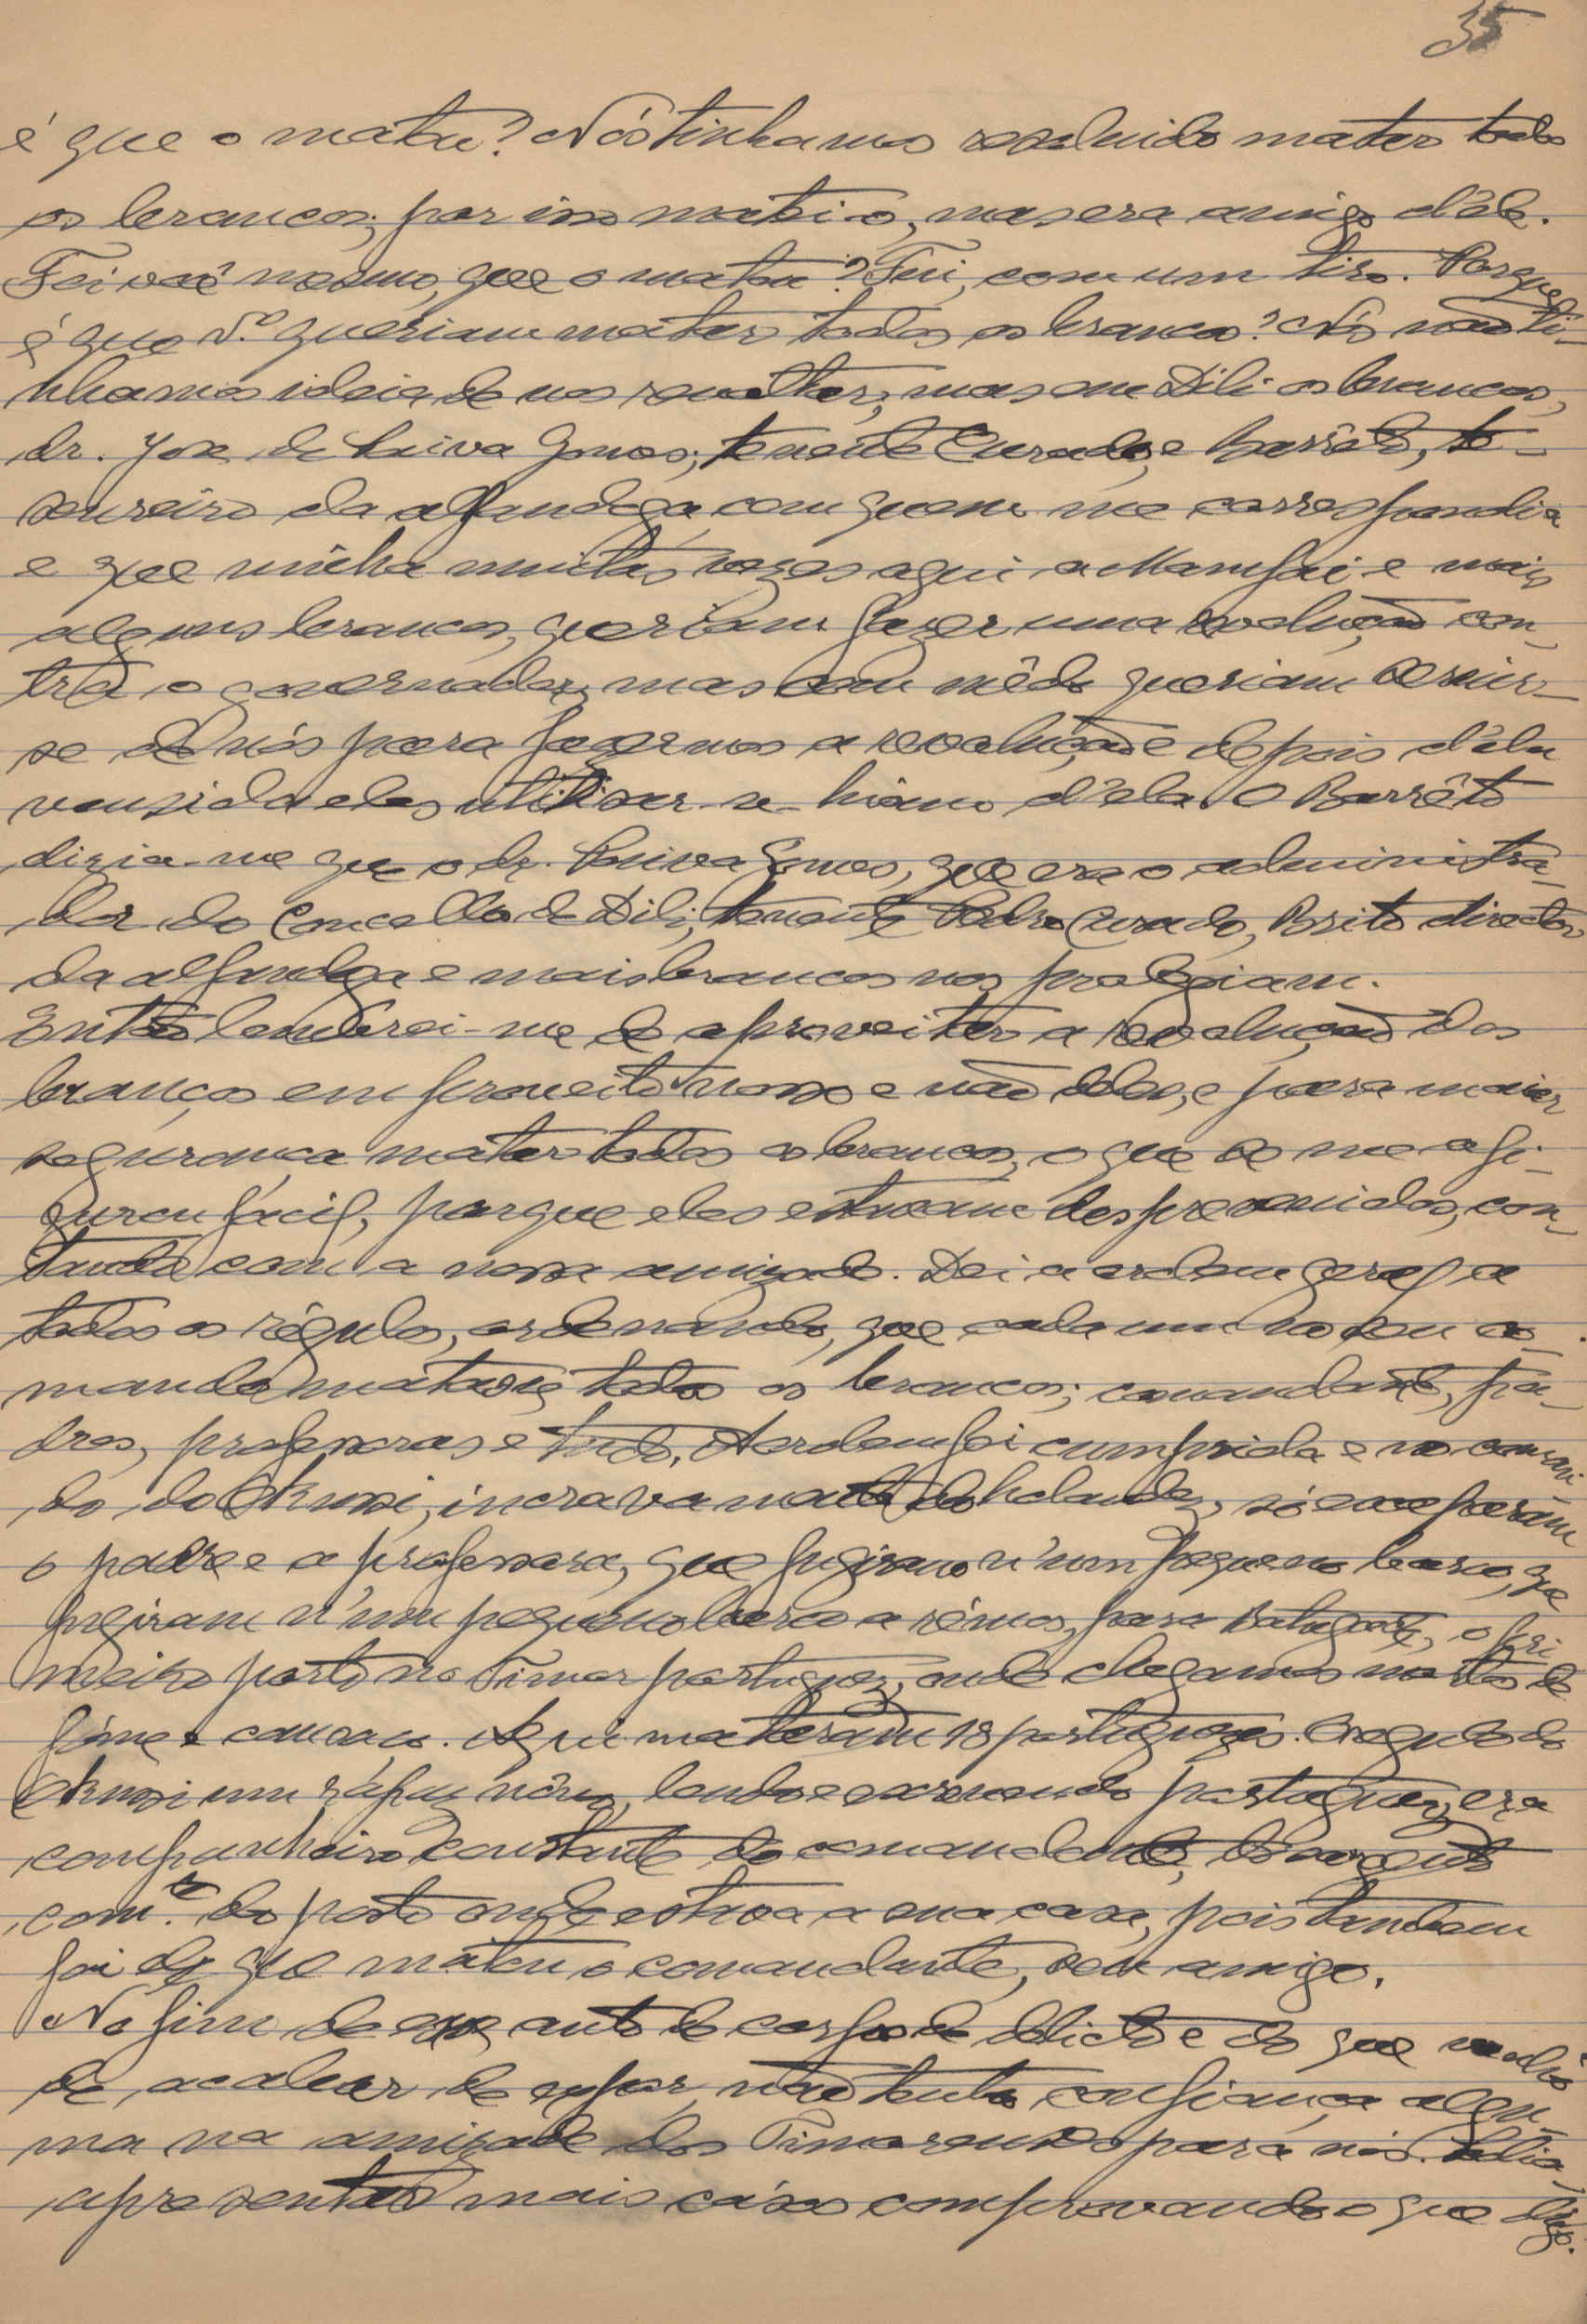 35
é que o matou? Nós tinhamos resoluido matar todo
os brancos, por isso matei-o, mas era amigo d'ele.
Foi você mesmo, que o matou? Fui, com um tiro. Porque
é que V.ᵒ queriam matar todos os branco? Nós não ti-
nhamos ideia de nos revoltar, mas em Dili os brancos,
dr. Jose de Paiva Gomes, tenente Curado, e Barrêto, te-
soureiro da alfandega, com quem me correspondia
e que vinha muitas vezes aqui a Manufai e mais
alguns brancos, queriam fazer uma revolução con-
tra o governador, mas com mêdo queriam servir-
se de nós para fazermos a revolução e depois d'ela
vensida eles utilisar-se-hiam d'ela. O Barrêto
dizia-me que o dr. Paiva Gomes, que era o administra-
dor do Concelho de Dili, tenente Pedro Curado, Brito director
da alfandega e mais brancos nos protegiam.
Então lembrei-me de aproveitar a revolução dos
brancos em proveito nosso e não deles, e para maior
segurança matar todos os brancos, o que se me afi-
gurou fácil, porque eles estavam desprevenidos, con-
tando com a nossa amizade. Dei a ordem geral a
todos os régulos, ordenando, que cada um no seu co-
mando matasse todos os brancos; comandante, pa-
dres, professoras e tudo. A ordem foi cumprida e no coman-
do do Okussi, incravamento do holandez, só escaparam
o padre e a professora, que fugiram n'um pequeno barco, que
fugiram n'um pequeno barco a rémos, para Batugadé, o pri
meiro porto no Timor portuguez, onde chegamos mortos de
fome e cansaço. Aqui mataram 18 portuguezes. O regulo do
Okussi um rápaz nôvo, lendo e escrevendo portuguez, era
companheiro constante do comandante, do sargento
com.ᵗᵉ do posto onde estava a sua casa, pois tambem
foi ele que matou o comandante, seu amigo.
No fim de esse auto de corpo de delicto e do que
de acabar de expor, não tenho confiança algu-
ma na amizade dos Timorenses para nós. Podia
apresentar mais cásos comprovando o que digo.